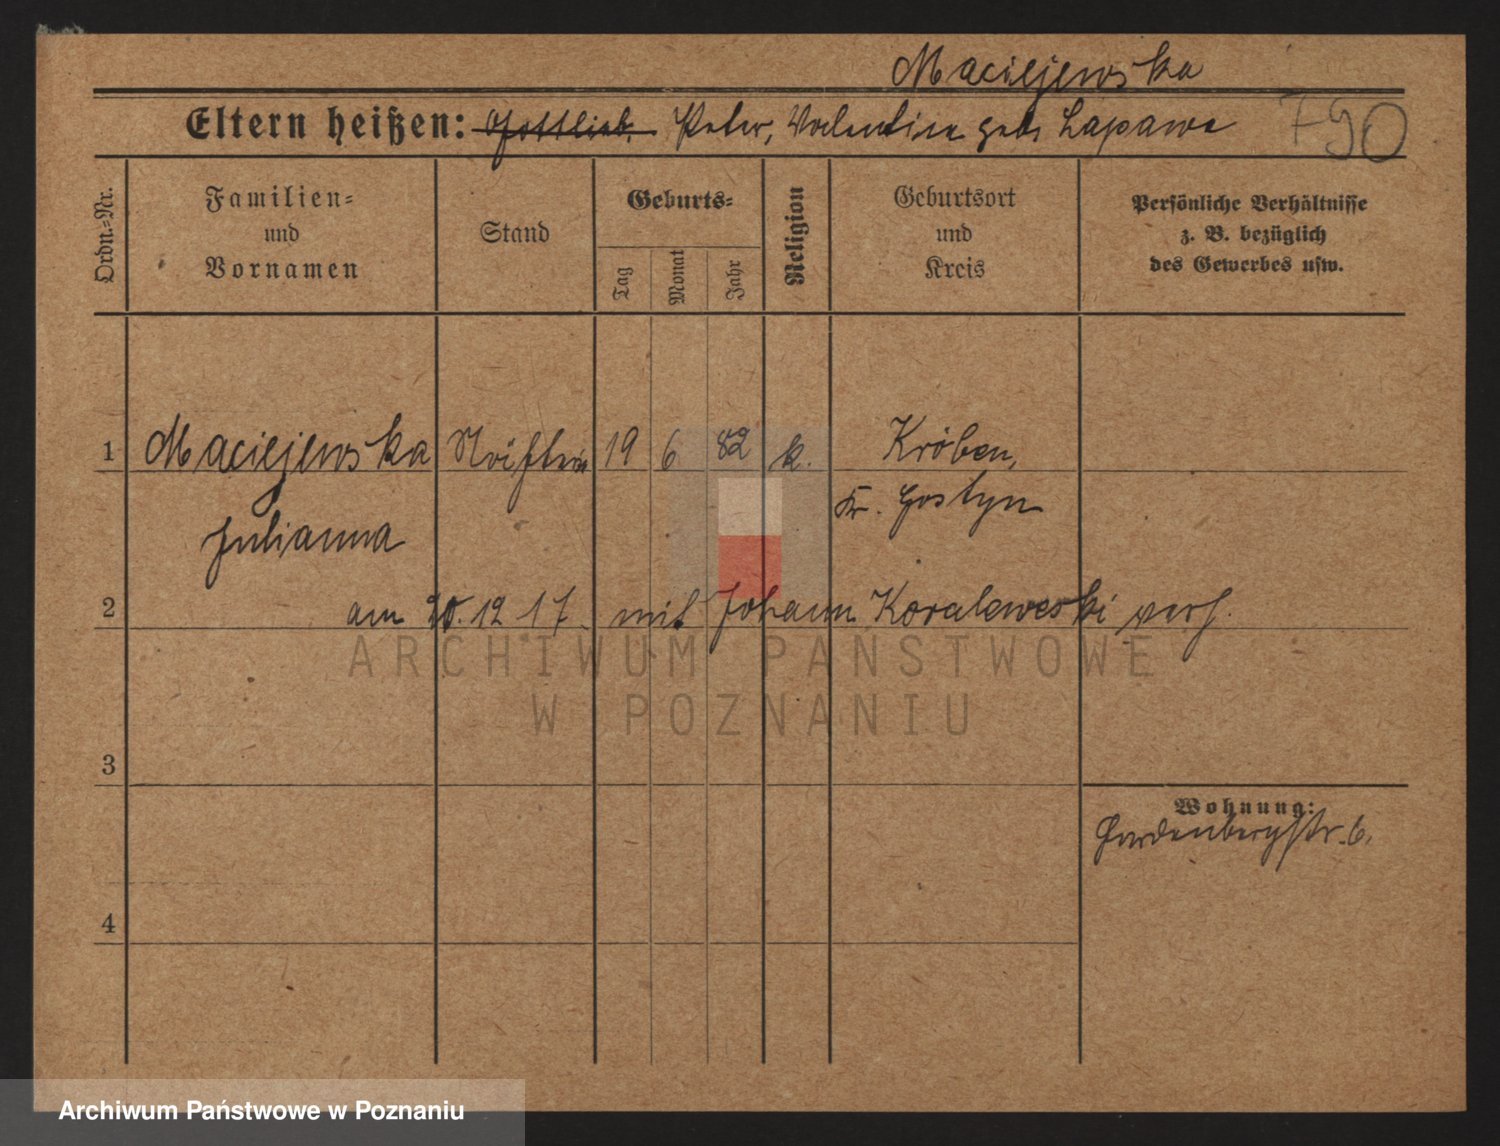 Maciejewska
Eltern heißen: Gottlieb, Peter, Valentine geb. Lapawa
790
Ordn.-Nr.
Familien-
und
Vornamen
Stand
Geburts-
Tag
Monat
Jahr
Religion
Geburtsort
und
Kreis
Persönliche Verhältnisse
z. B. bezüglich
des Gewerbes usw.
1 Maciejewska 19 6 82 k. Kröben,
Julianna Kr. Gostyn
2 am 20. 12 17 mit Johann Koralewski verh.
ARCHIWUM PAŃSTWOWE
W POZNANIU
3
Wohnung:
Hardenbergstr. 6.
4
Archiwum Państwowe w Poznaniu